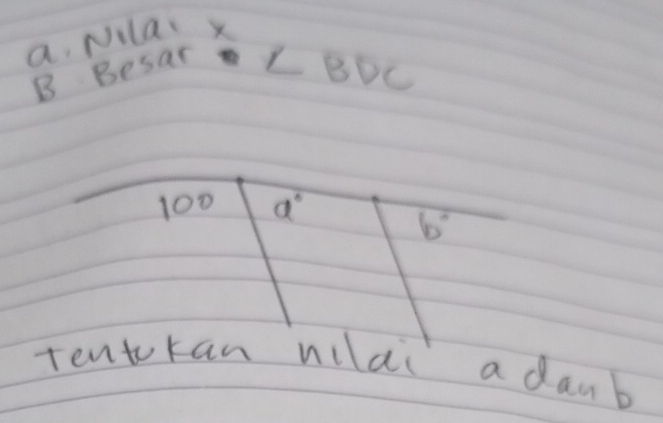 a. Nilai x
B Besar ∠ BDC
100 a° b°
Tentukan nilai a dan b